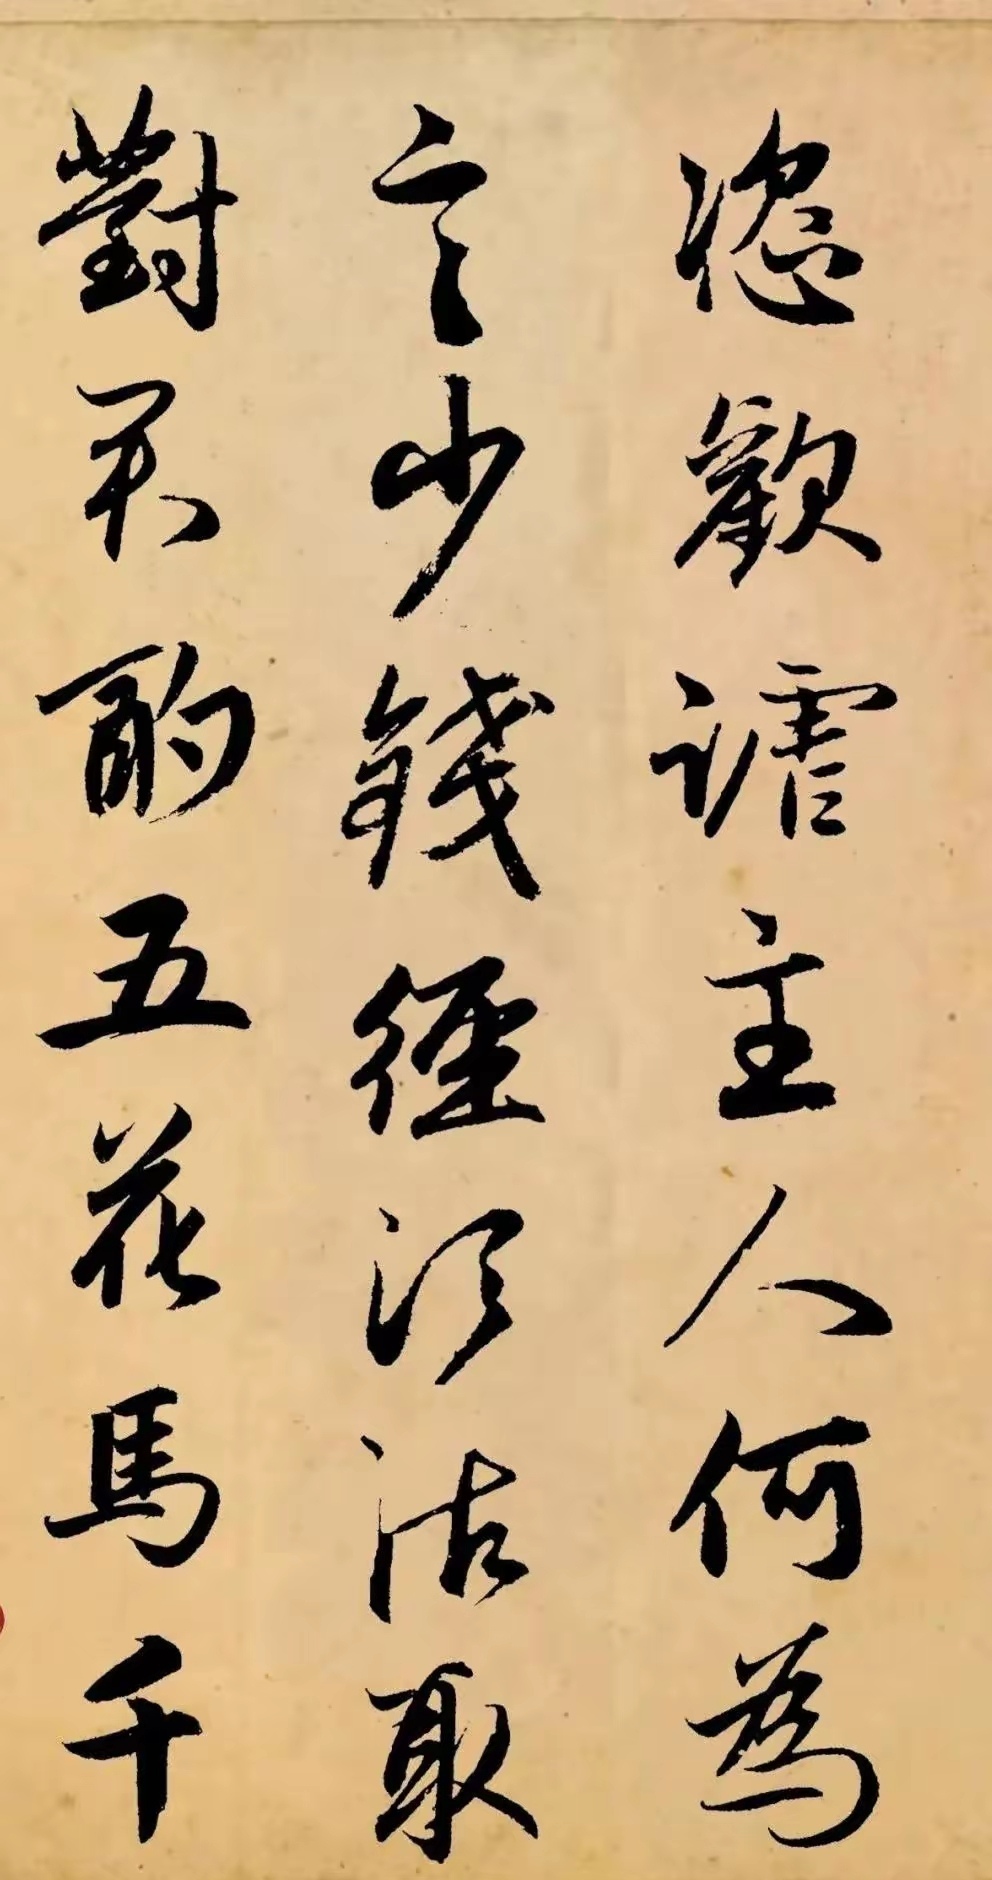 恣歡謔主人何為
言少錢徑須沽取
對君酌五花馬千